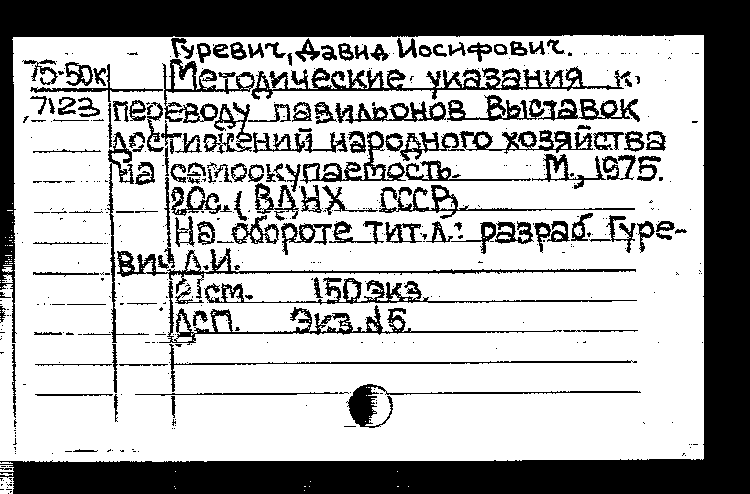 Гуревич, Давид Иосифович.
75-50к Методические указания к
7123 переводу павильонов Выставок
достижений народного хозяйства
на самоокупаемость. М., 1975.
20с. (ВДНХ СССР).
На обороте тит.л.: разраб. Гуре-
вич Д.И.
21см. 150 экз.
ДСП. Экз.№5.